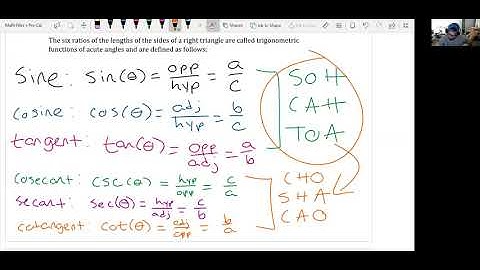 The six ratios of the lengths of the sides of a right triangle are called trigonometric
functions of acute angles and are defined as follows:
Sine: sin(θ) = opp/hyp = a/c
cosine: cos(θ) = adj/hyp = b/c
tangent: tan(θ) = opp/adj = a/b
cosecant: csc(θ) = hyp/opp = c/a
secant: sec(θ) = hyp/adj = c/b
cotangent: cot(θ) = adj/opp = b/a
SOH
CAH
TOA
CHO
SHA
CAO